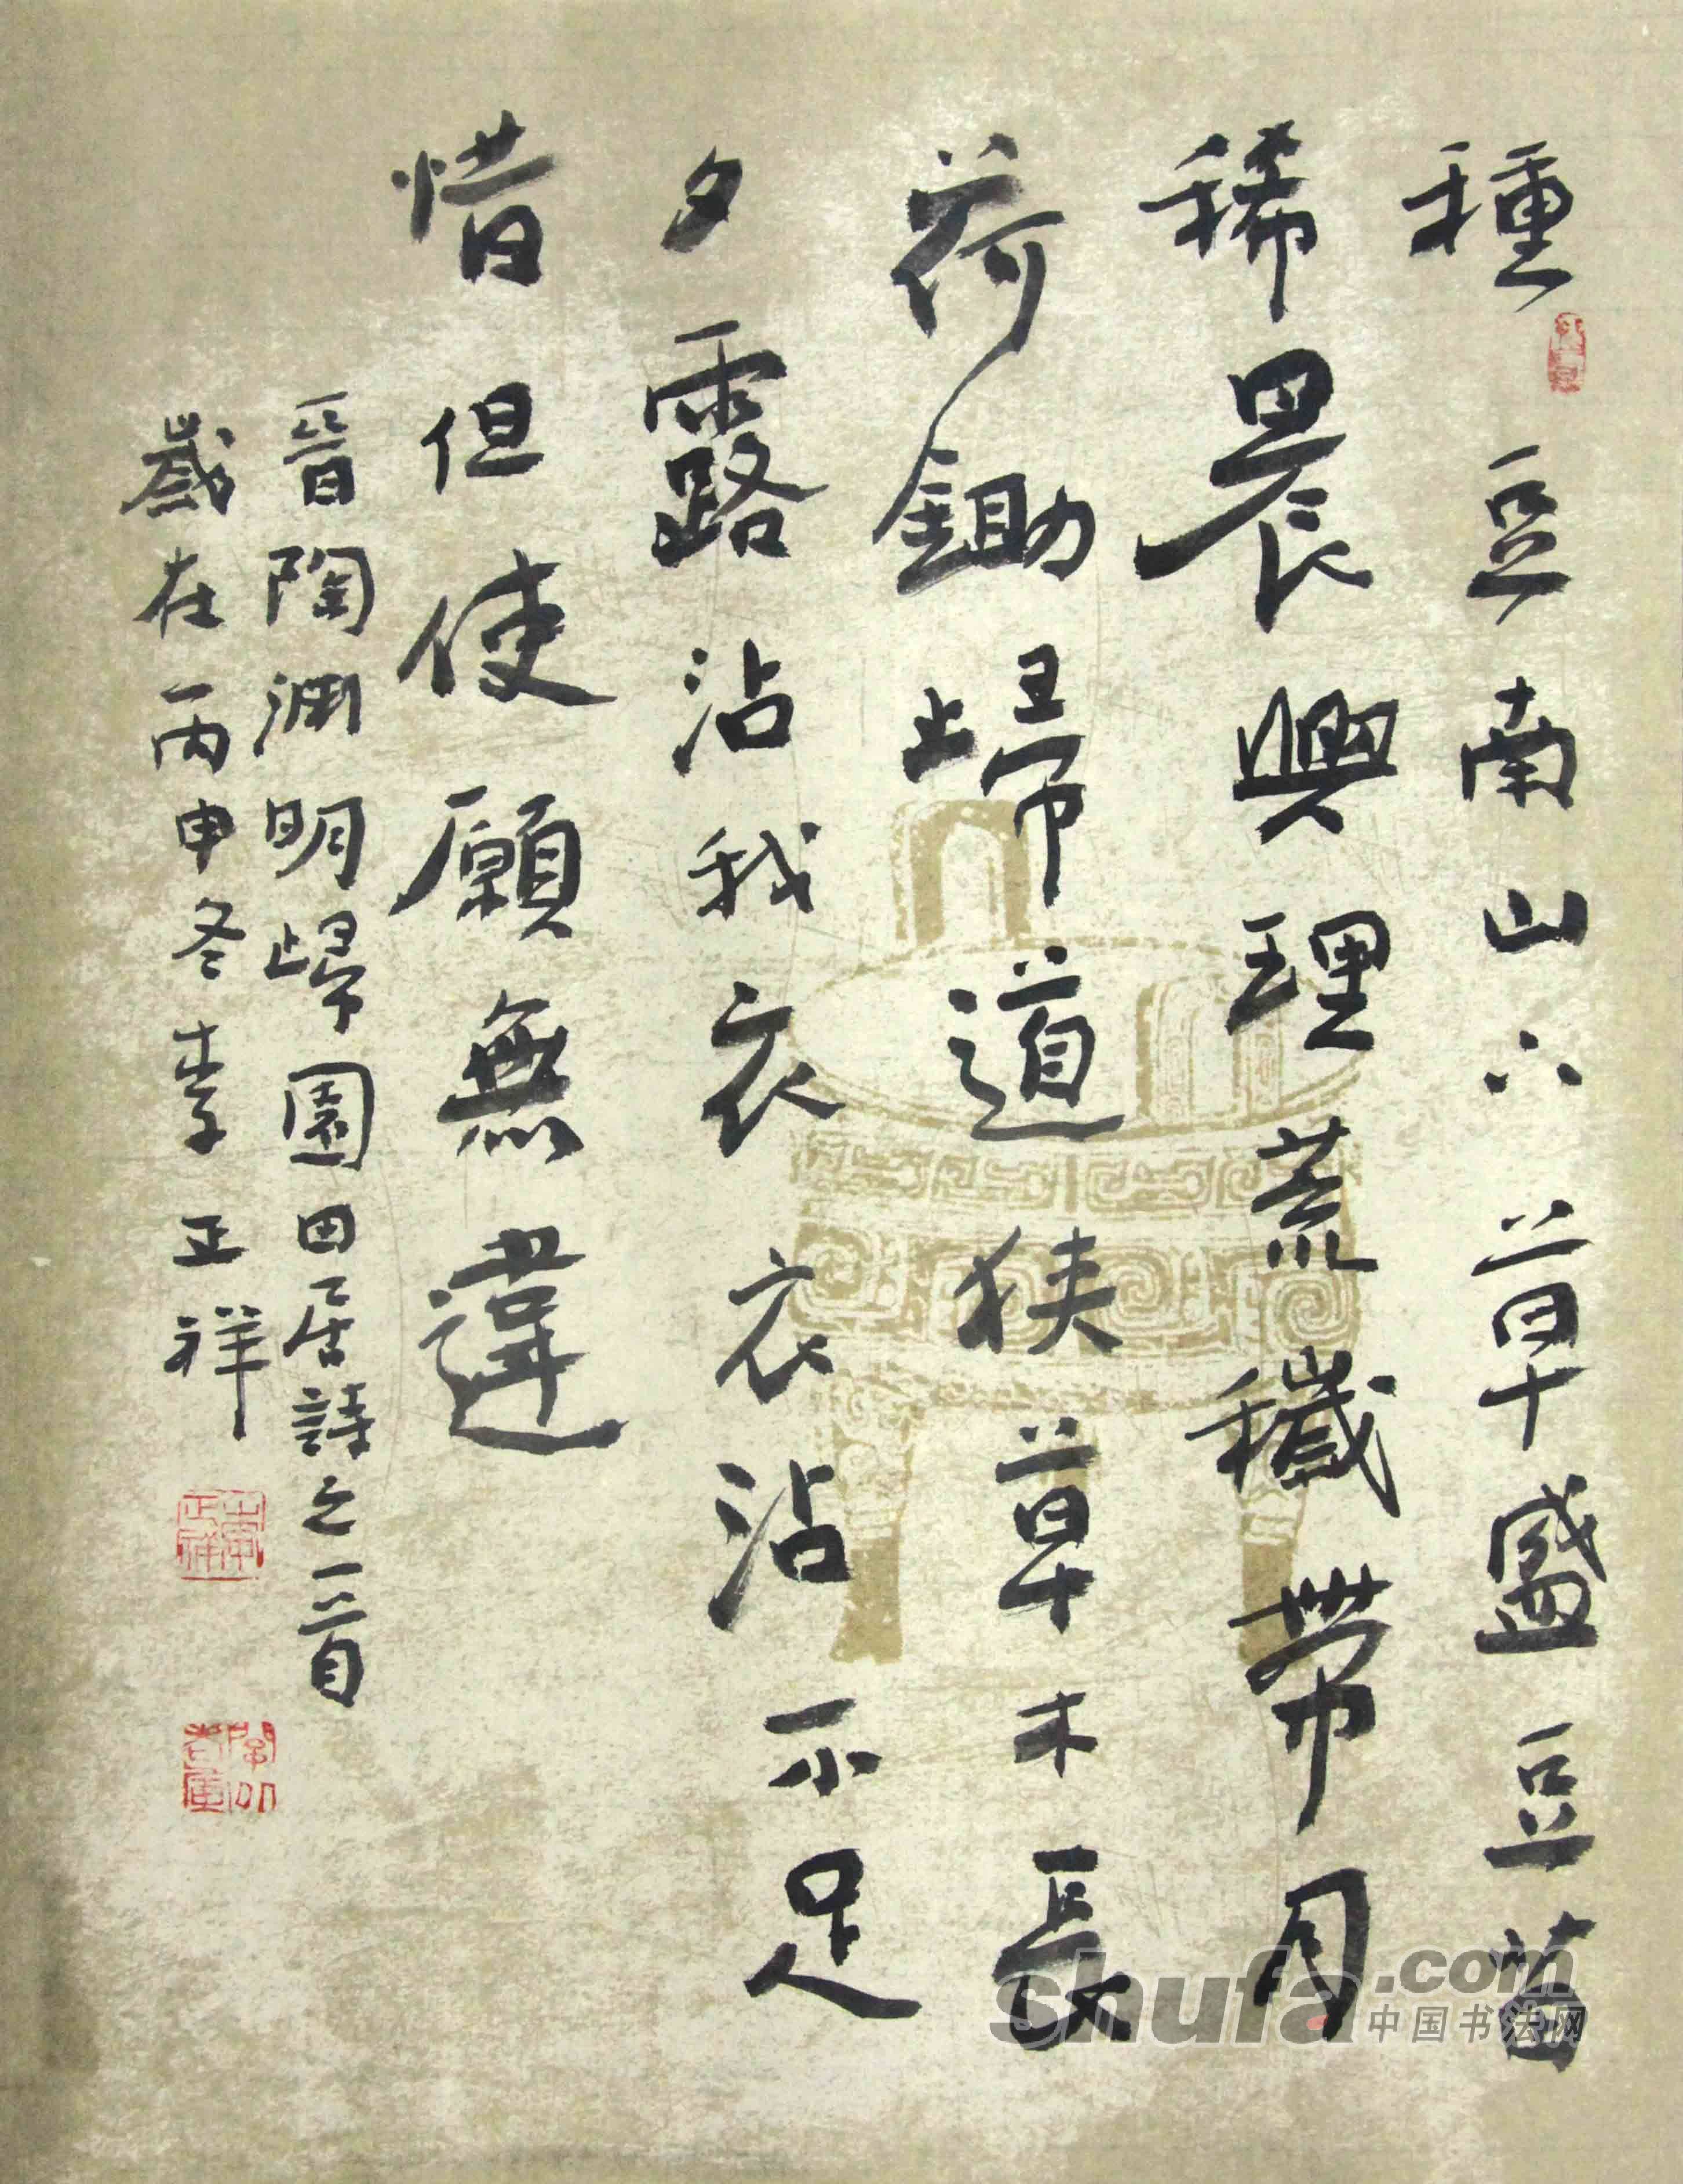 種豆南山下草盛豆苗
稀晨興理荒穢帶月
荷鋤歸道狹草木長
夕露沾我衣衣沾不足
惜但使願無違
晉陶淵明歸園田居詩之一首
歲在丙申冬李正祥
shufa.com
中国书法网